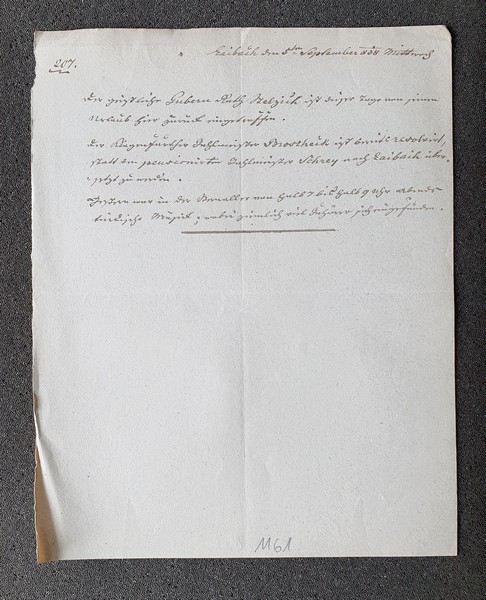 Laibach den 5ten September 838 Mittwoch
207.
Der geistliche Gubern. Rath Stelzich ist dieser Tage von seinem
Urlaub hier zurück eingetroffen.
Der Klagenfurther Zahlmeister ist bereits
statt dem pensionirten Zahlmeister Schrey nach Laibach über-
setzt zu werden.
Gestern war in der Sternallee von halb 7 bis halb 9 Uhr Abends
türkische Musick; wobei ziemlich viel Zuhörer sich eingefunden.
1161